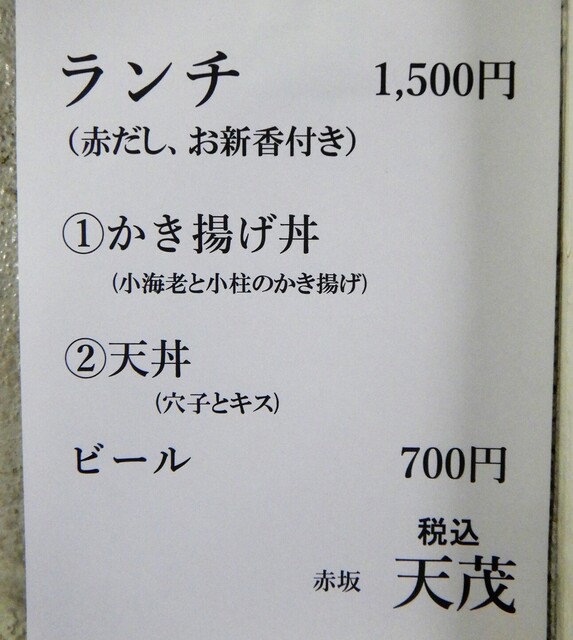 ランチ 1,500円
(赤だし、お新香付き)
①かき揚げ丼
(小海老と小柱のかき揚げ)
②天丼
(穴子とキス)
ビール 700円
税込
赤坂 天茂